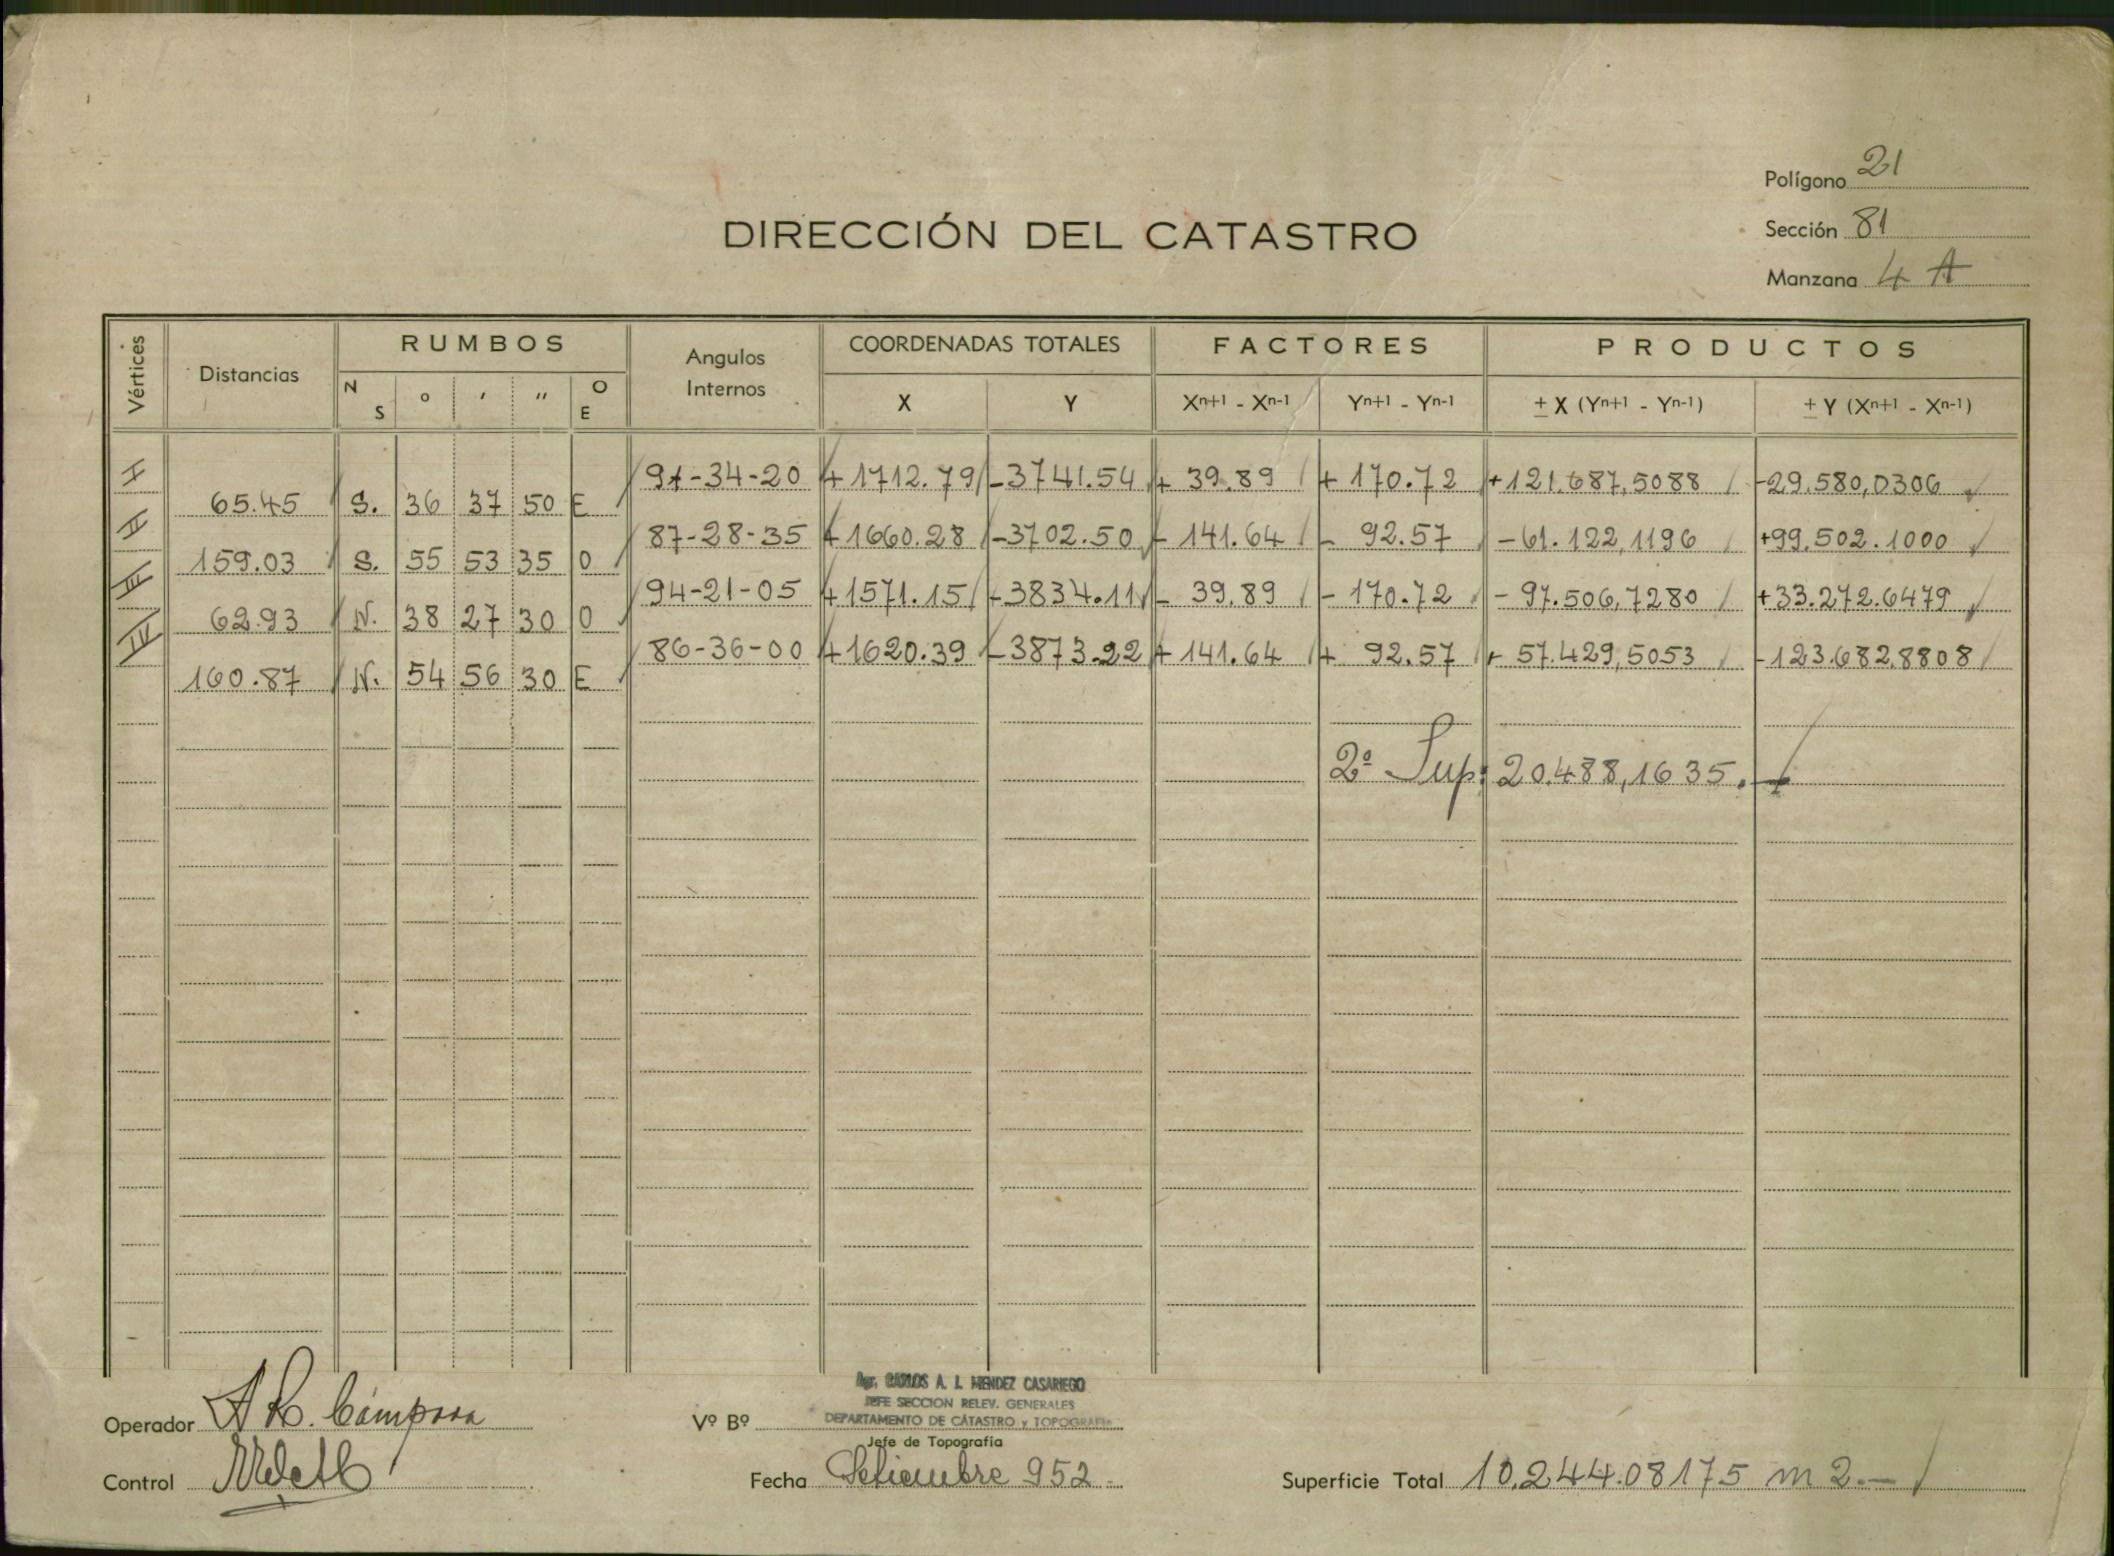 Polígono 21
DIRECCIÓN DEL CATASTRO
Sección 81
Manzana 4 A
Vértices Distancias RUMBOS Angulos Internos COORDENADAS TOTALES FACTORES PRODUCTOS
N S ° ′ ″ O E X Y Xn+1 - Xn-1 Yn+1 - Yn-1 ± X (Yn+1 - Yn-1) ± Y (Xn+1 - Xn-1)
I 91-34-20 +1712.79 -3741.54 + 39.89 + 170.72 +121.687,5088 -29.580,0306
65.45 S. 36 37 50 E
II 87-28-35 +1660.28 -3702.50 - 141.64 - 92.57 -61.122,1196 +99.502.1000
159.03 S. 55 53 35 O
III 94-21-05 +1571.15 -3834.11 - 39.89 - 170.72 - 97.506,7280 +33.272.6479
62.93 N. 38 27 30 O
IV 86-36-00 +1620.39 -3873.22 + 141.64 + 92.57 + 57.429,5053 -123.682,8808
160.87 N. 54 56 30 E
2º Sup: 20.488,1635.-
Agr. CARLOS A. I. MENDEZ CASARIEGO
JEFE SECCION RELEV. GENERALES
DEPARTAMENTO DE CATASTRO y TOPOGRAFIA
Operador A R. Cámpora Vº Bº
Jefe de Topografía
Control Fecha Setiembre 952.- Superficie Total 10.244.08175 m2.-